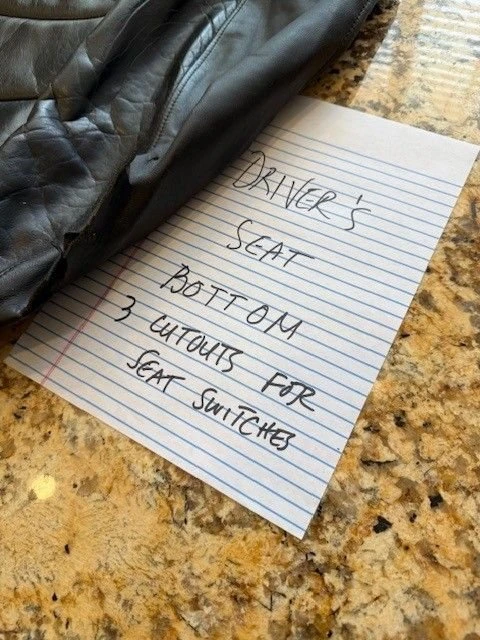 DRIVER'S
SEAT
BOTTOM
3 CUTOUTS FOR
SEAT SWITCHES